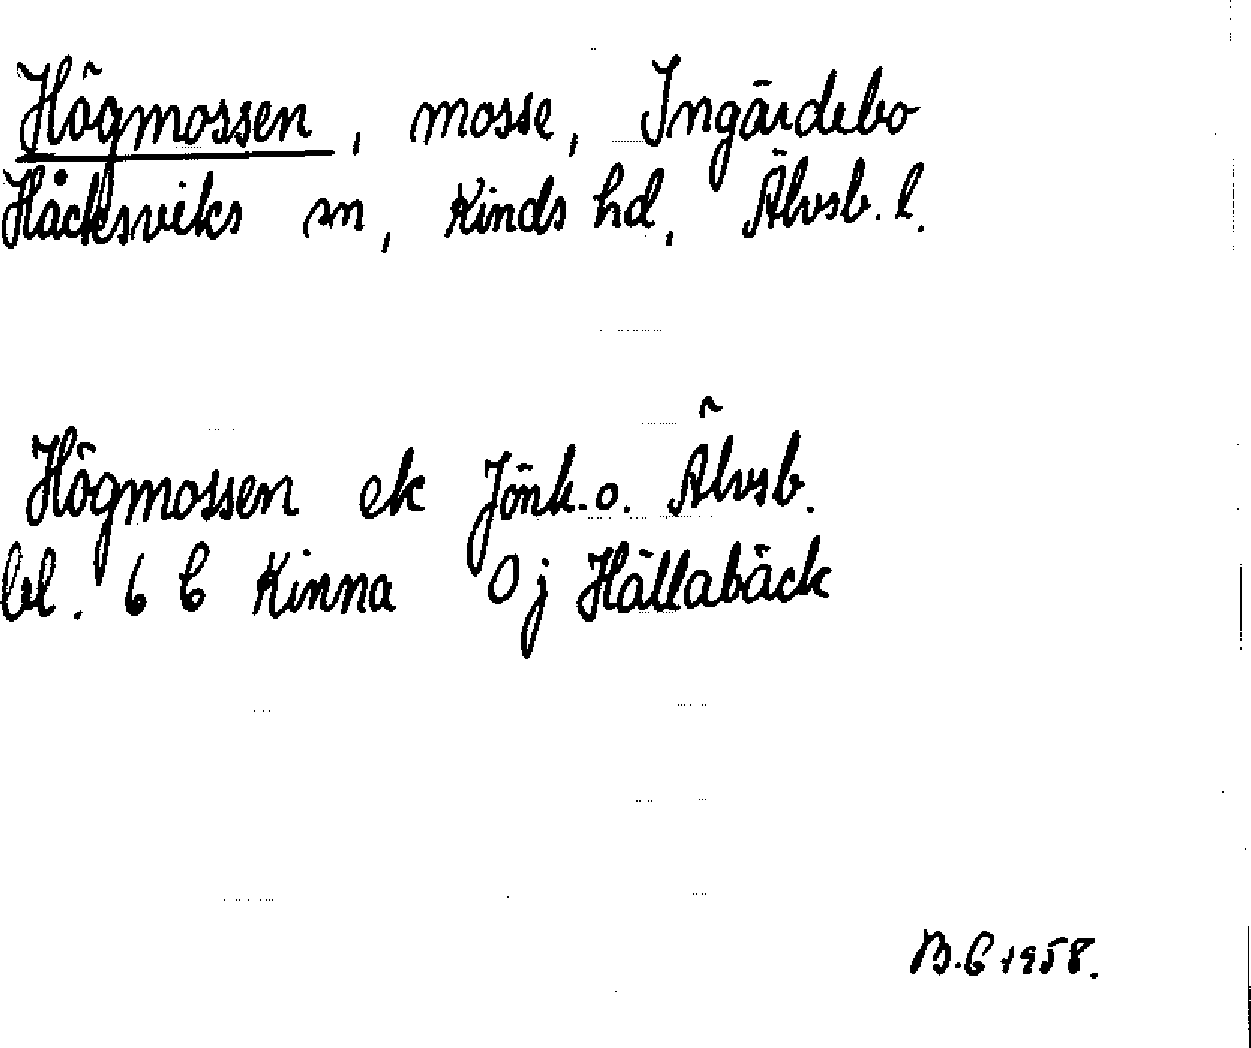 Högmossen, mosse, Ingärdebo
Håcksviks sn, Kinds hd, Älvsb. l.
Högmossen ek Jönk. o. Älvsb.
bl. 6 C Kinna 0 j Hällabäck
B.G 1958.